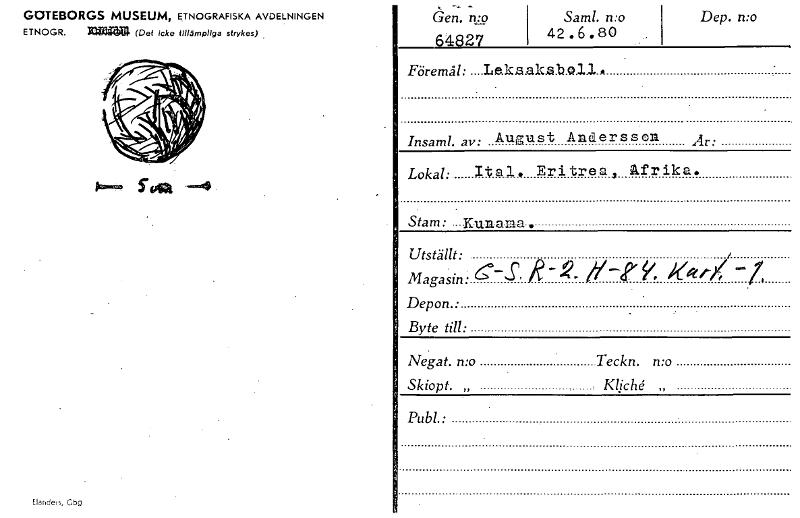 GÖTEBORGS MUSEUM, ETNOGRAFISKA AVDELNINGEN
ETNOGR. (Det icke tillämpliga strykes)
5 cm
Elanders, Gbg
Gen. n:o Saml. n:o Dep. n:o
64827 42.6.80
Föremål: Leksaksboll.
Insaml. av: August Andersson År:
Lokal: Ital. Eritrea, Afrika.
Stam: Kunama.
Utställt:
Magasin: G-S. R-2. H-84. Kart. -1.
Depon.:
Byte till:
Negat. n:o Teckn. n:o
Skiopt. „ Kliché „
Publ.: